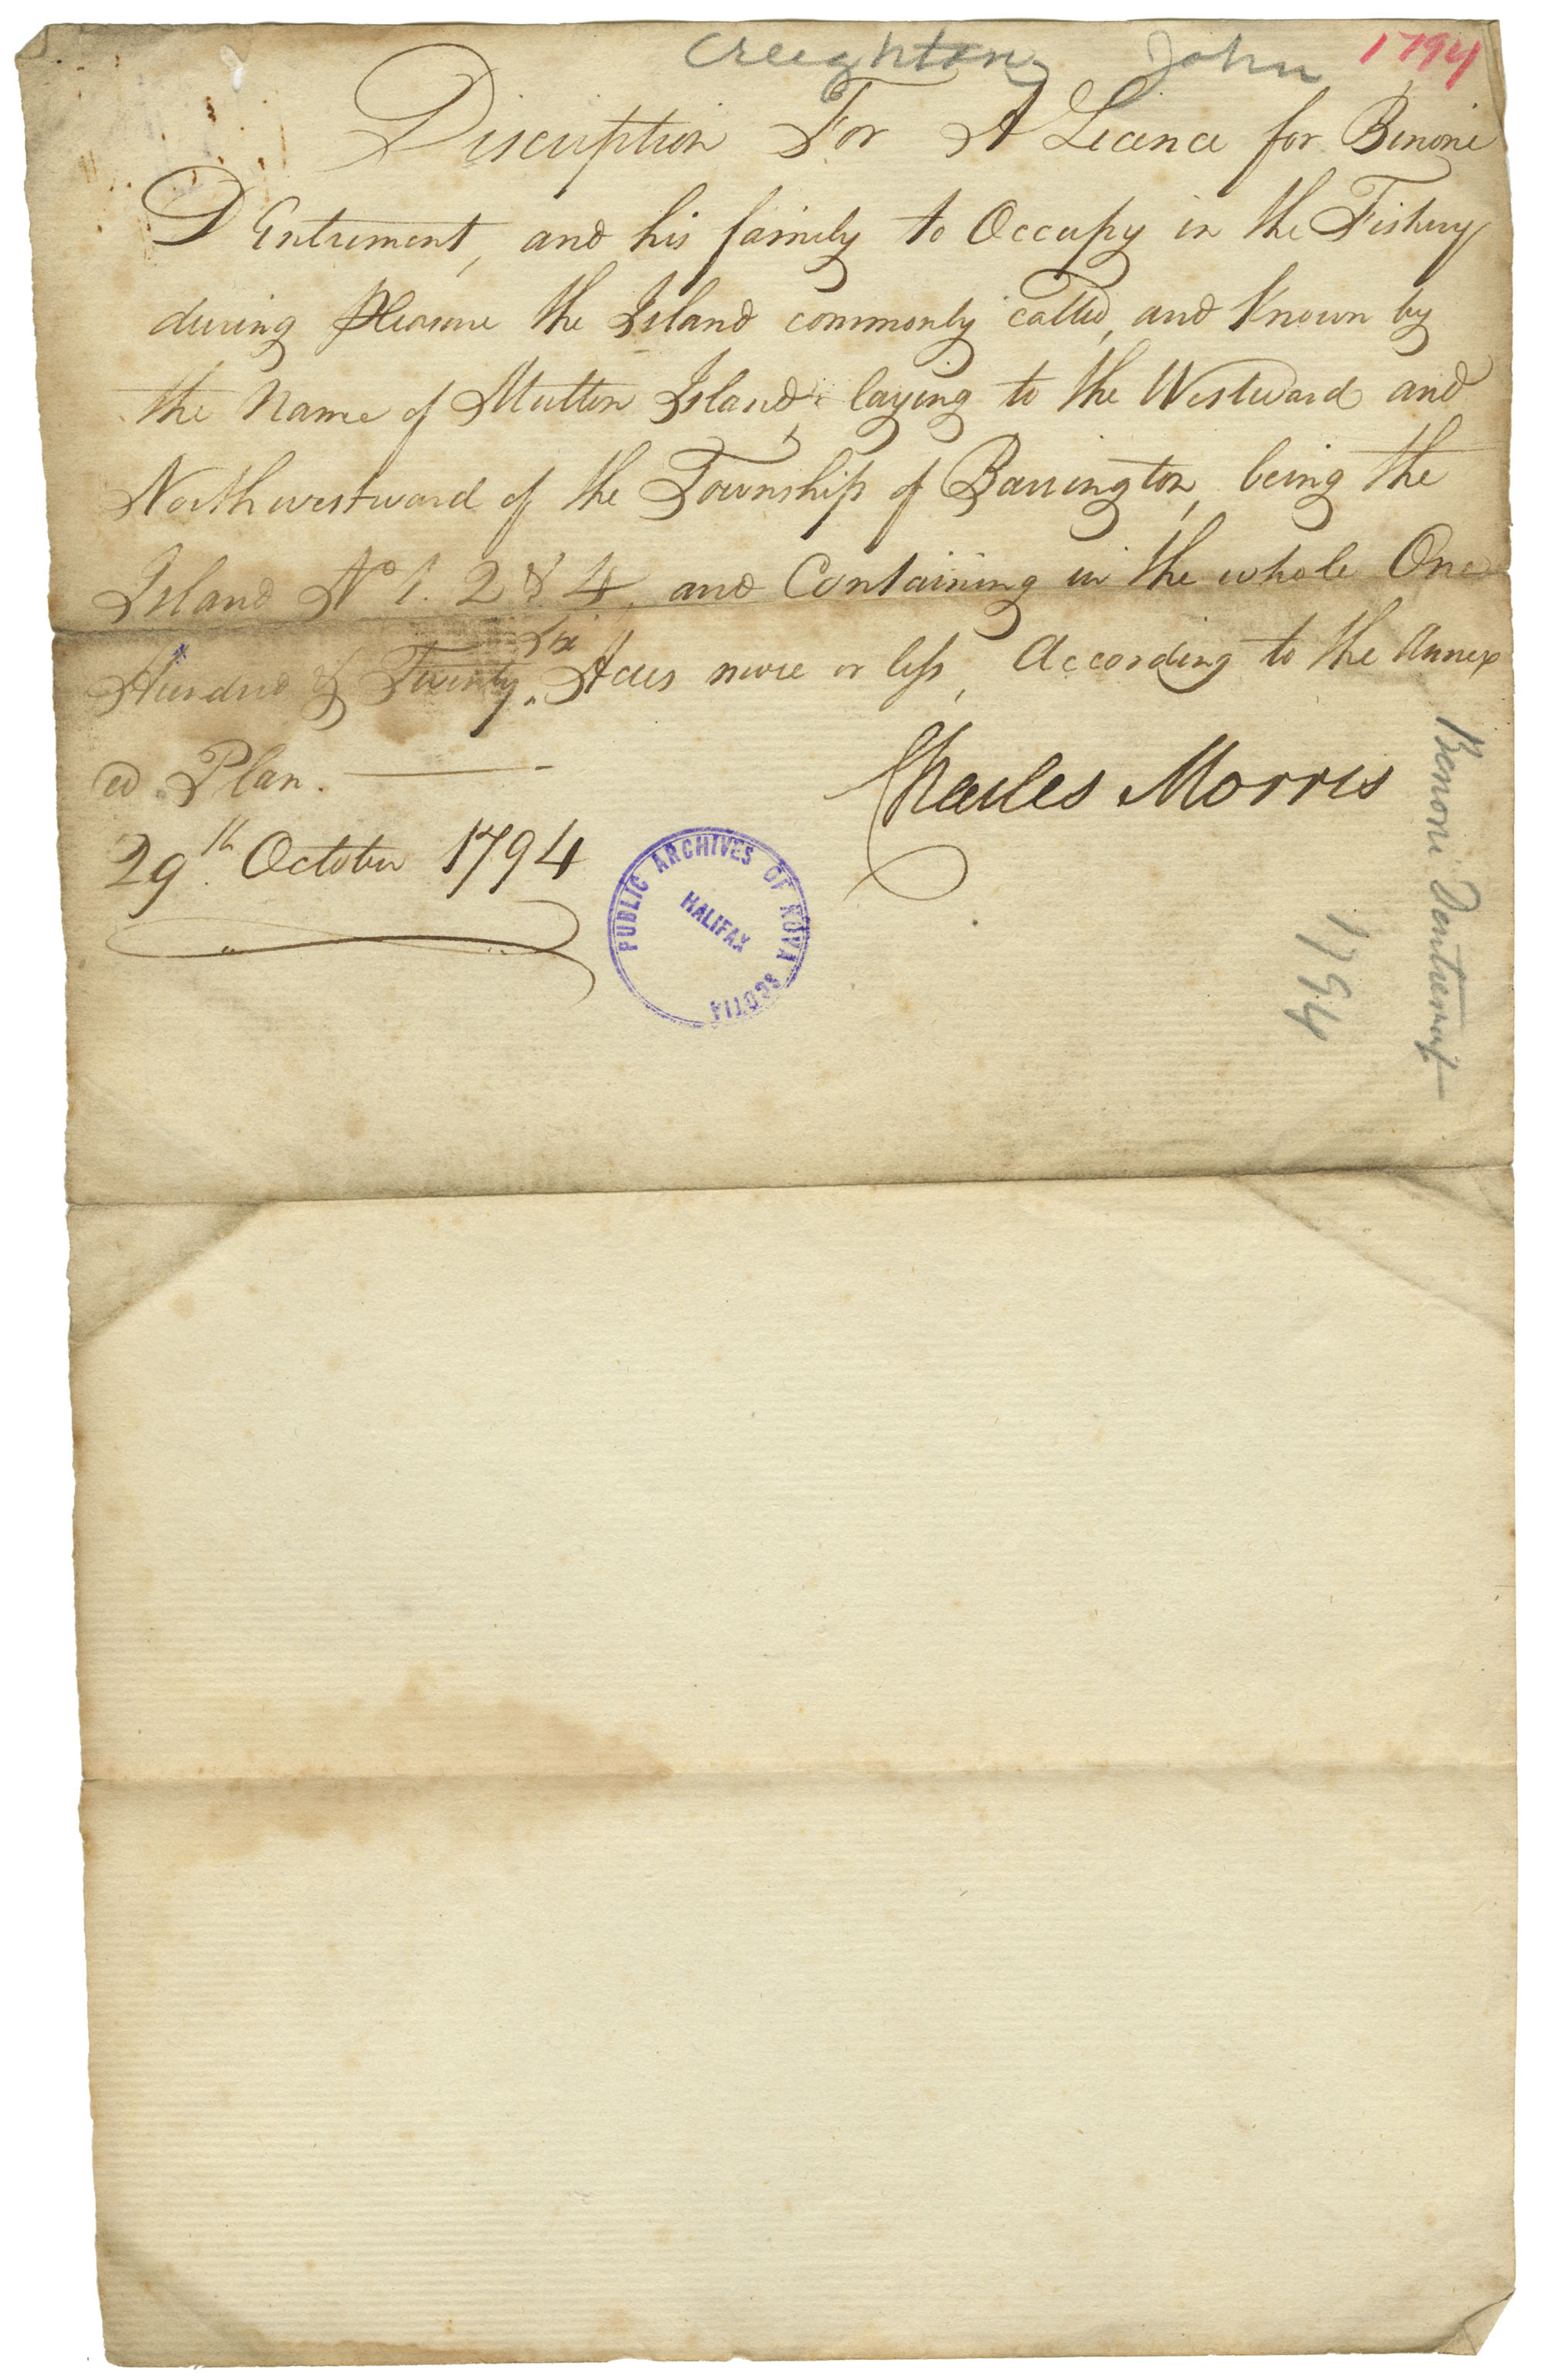 Creighton John 1794
Discription For A Licence for Benoni
D Entremont, and his family to Occupy in the Fishery
during Pleasure the Island commonly called, and Known by
the Name of Mutton Island, laying to the Westward and
Northwestward of the Township of Barrington, being the
Island No 1. 2 & 4, and Containing in the whole One
Hundred & Twenty Six Acres more or less, According to the Annex
ed Plan.
Charles Morris
29th October 1794
PUBLIC ARCHIVES OF NOVA SCOTIA
HALIFAX
Benoni Dentremont
1794